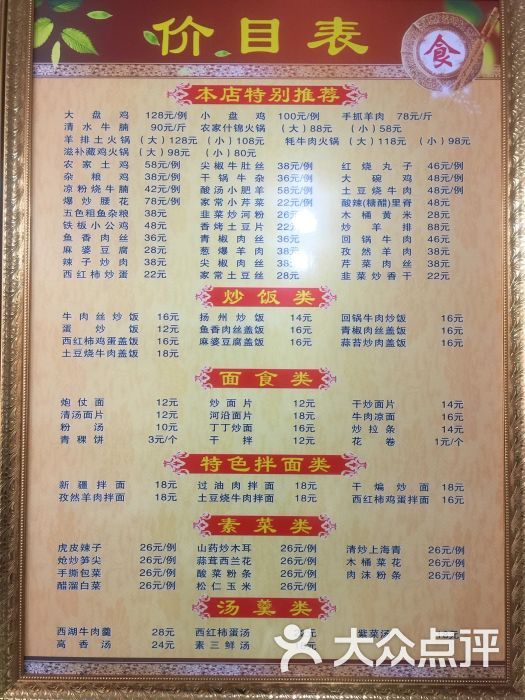 价目表
食
本店特别推荐
大盘鸡 128元/例 小盘鸡 100元/例 手抓羊肉 78元/斤
清水牛腩 90元/斤 农家什锦火锅 （大）88元 （小）58元
羊排土火锅（大）128元（小）108元 牦牛肉火锅（大）118元（小）98元
滋补藏鸡火锅（大）98元（小）80元
农家土鸡 58元/例 尖椒牛肚丝 38元/例 红烧丸子 46元/例
杂粮鸡 38元/例 干锅牛杂 36元/例 大碗鸡 48元/例
凉粉烧牛腩 42元/例 酸汤小肥羊 58元/例 土豆烧牛肉 48元/例
爆炒腰花 78元/例 家常小芹菜 22元/例 酸辣(糖醋)里脊 48元
五色粗鱼杂粮 38元 韭菜炒河粉 26元 木桶黄米 28元
铁板小公鸡 48元 香烤土豆片 22元 炒羊排 88元
鱼香肉丝 36元 青椒肉丝 36元 回锅牛肉 36元
麻婆豆腐 28元 葱爆羊肉 38元 孜然羊肉 38元
辣子炒肉 38元 尖椒肉丝 38元 芹菜肉丝 38元
西红柿炒蛋 22元 家常土豆丝 28元 韭菜炒香干 22元
炒饭类
牛肉丝炒饭 16元 扬州炒饭 14元 回锅牛肉炒饭 16元
蛋炒饭 12元 鱼香肉丝盖饭 16元 青椒肉丝盖饭 16元
西红柿鸡蛋盖饭 16元 麻婆豆腐盖饭 16元 蒜苔炒肉盖饭 16元
土豆烧牛肉盖饭 18元
面食类
炮仗面 12元 炒面片 12元 干炒面片 14元
清汤面片 12元 河沿面片 18元 牛肉凉面 16元
粉汤 10元 丁丁炒面 16元 炒拉条 14元
青稞饼 3元/个 干拌 12元 花卷 1元/个
特色拌面类
新疆拌面 18元 过油肉拌面 18元 干煸炒面 18元
孜然羊肉拌面 18元 土豆烧牛肉拌面 18元 西红柿鸡蛋拌面 16元
素菜类
虎皮辣子 26元/例 山药炒木耳 26元/例 清炒上海青 26元/例
炝炒笋尖 26元/例 蒜茸西兰花 26元/例 木桶菜花 26元/例
手撕包菜 26元/例 酸菜粉条 26元/例 肉沫粉条 26元/例
醋溜白菜 26元/例 松仁玉米 26元/例
汤羹类
西湖牛肉羹 28元 西红柿蛋汤 紫菜汤
高香汤 24元 素三鲜汤
大众点评